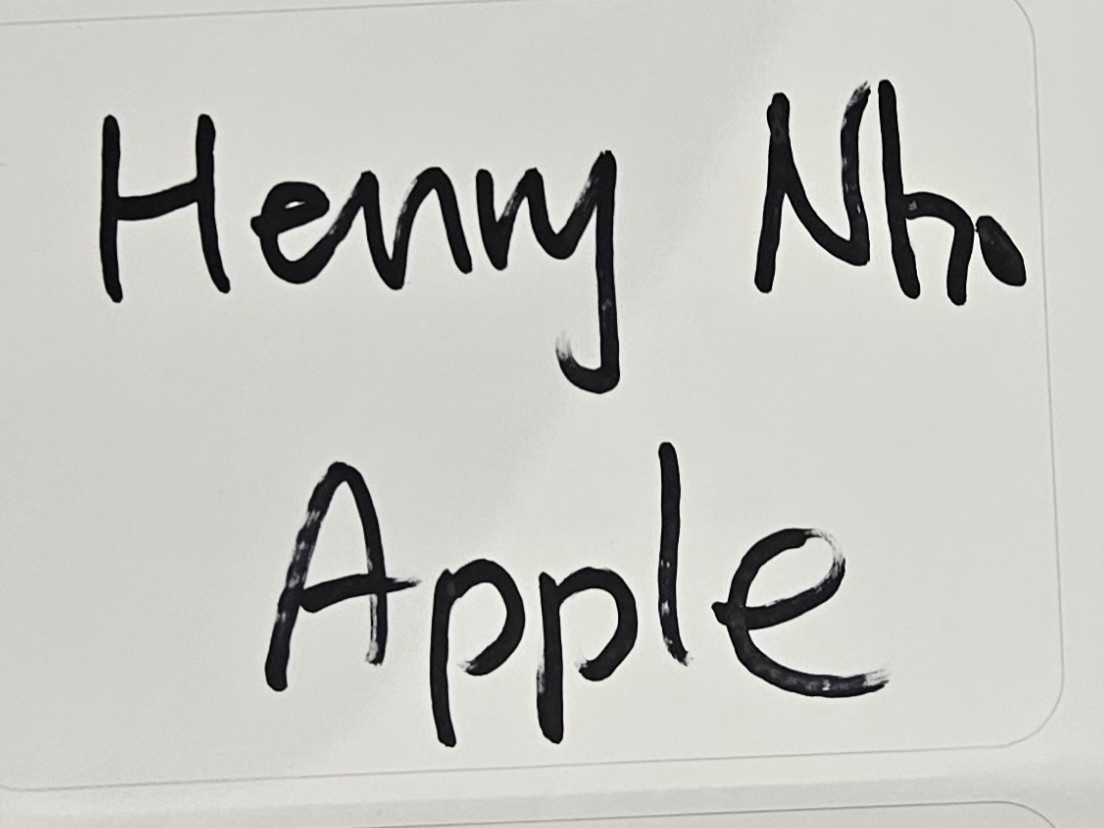 Henry Nho
Apple